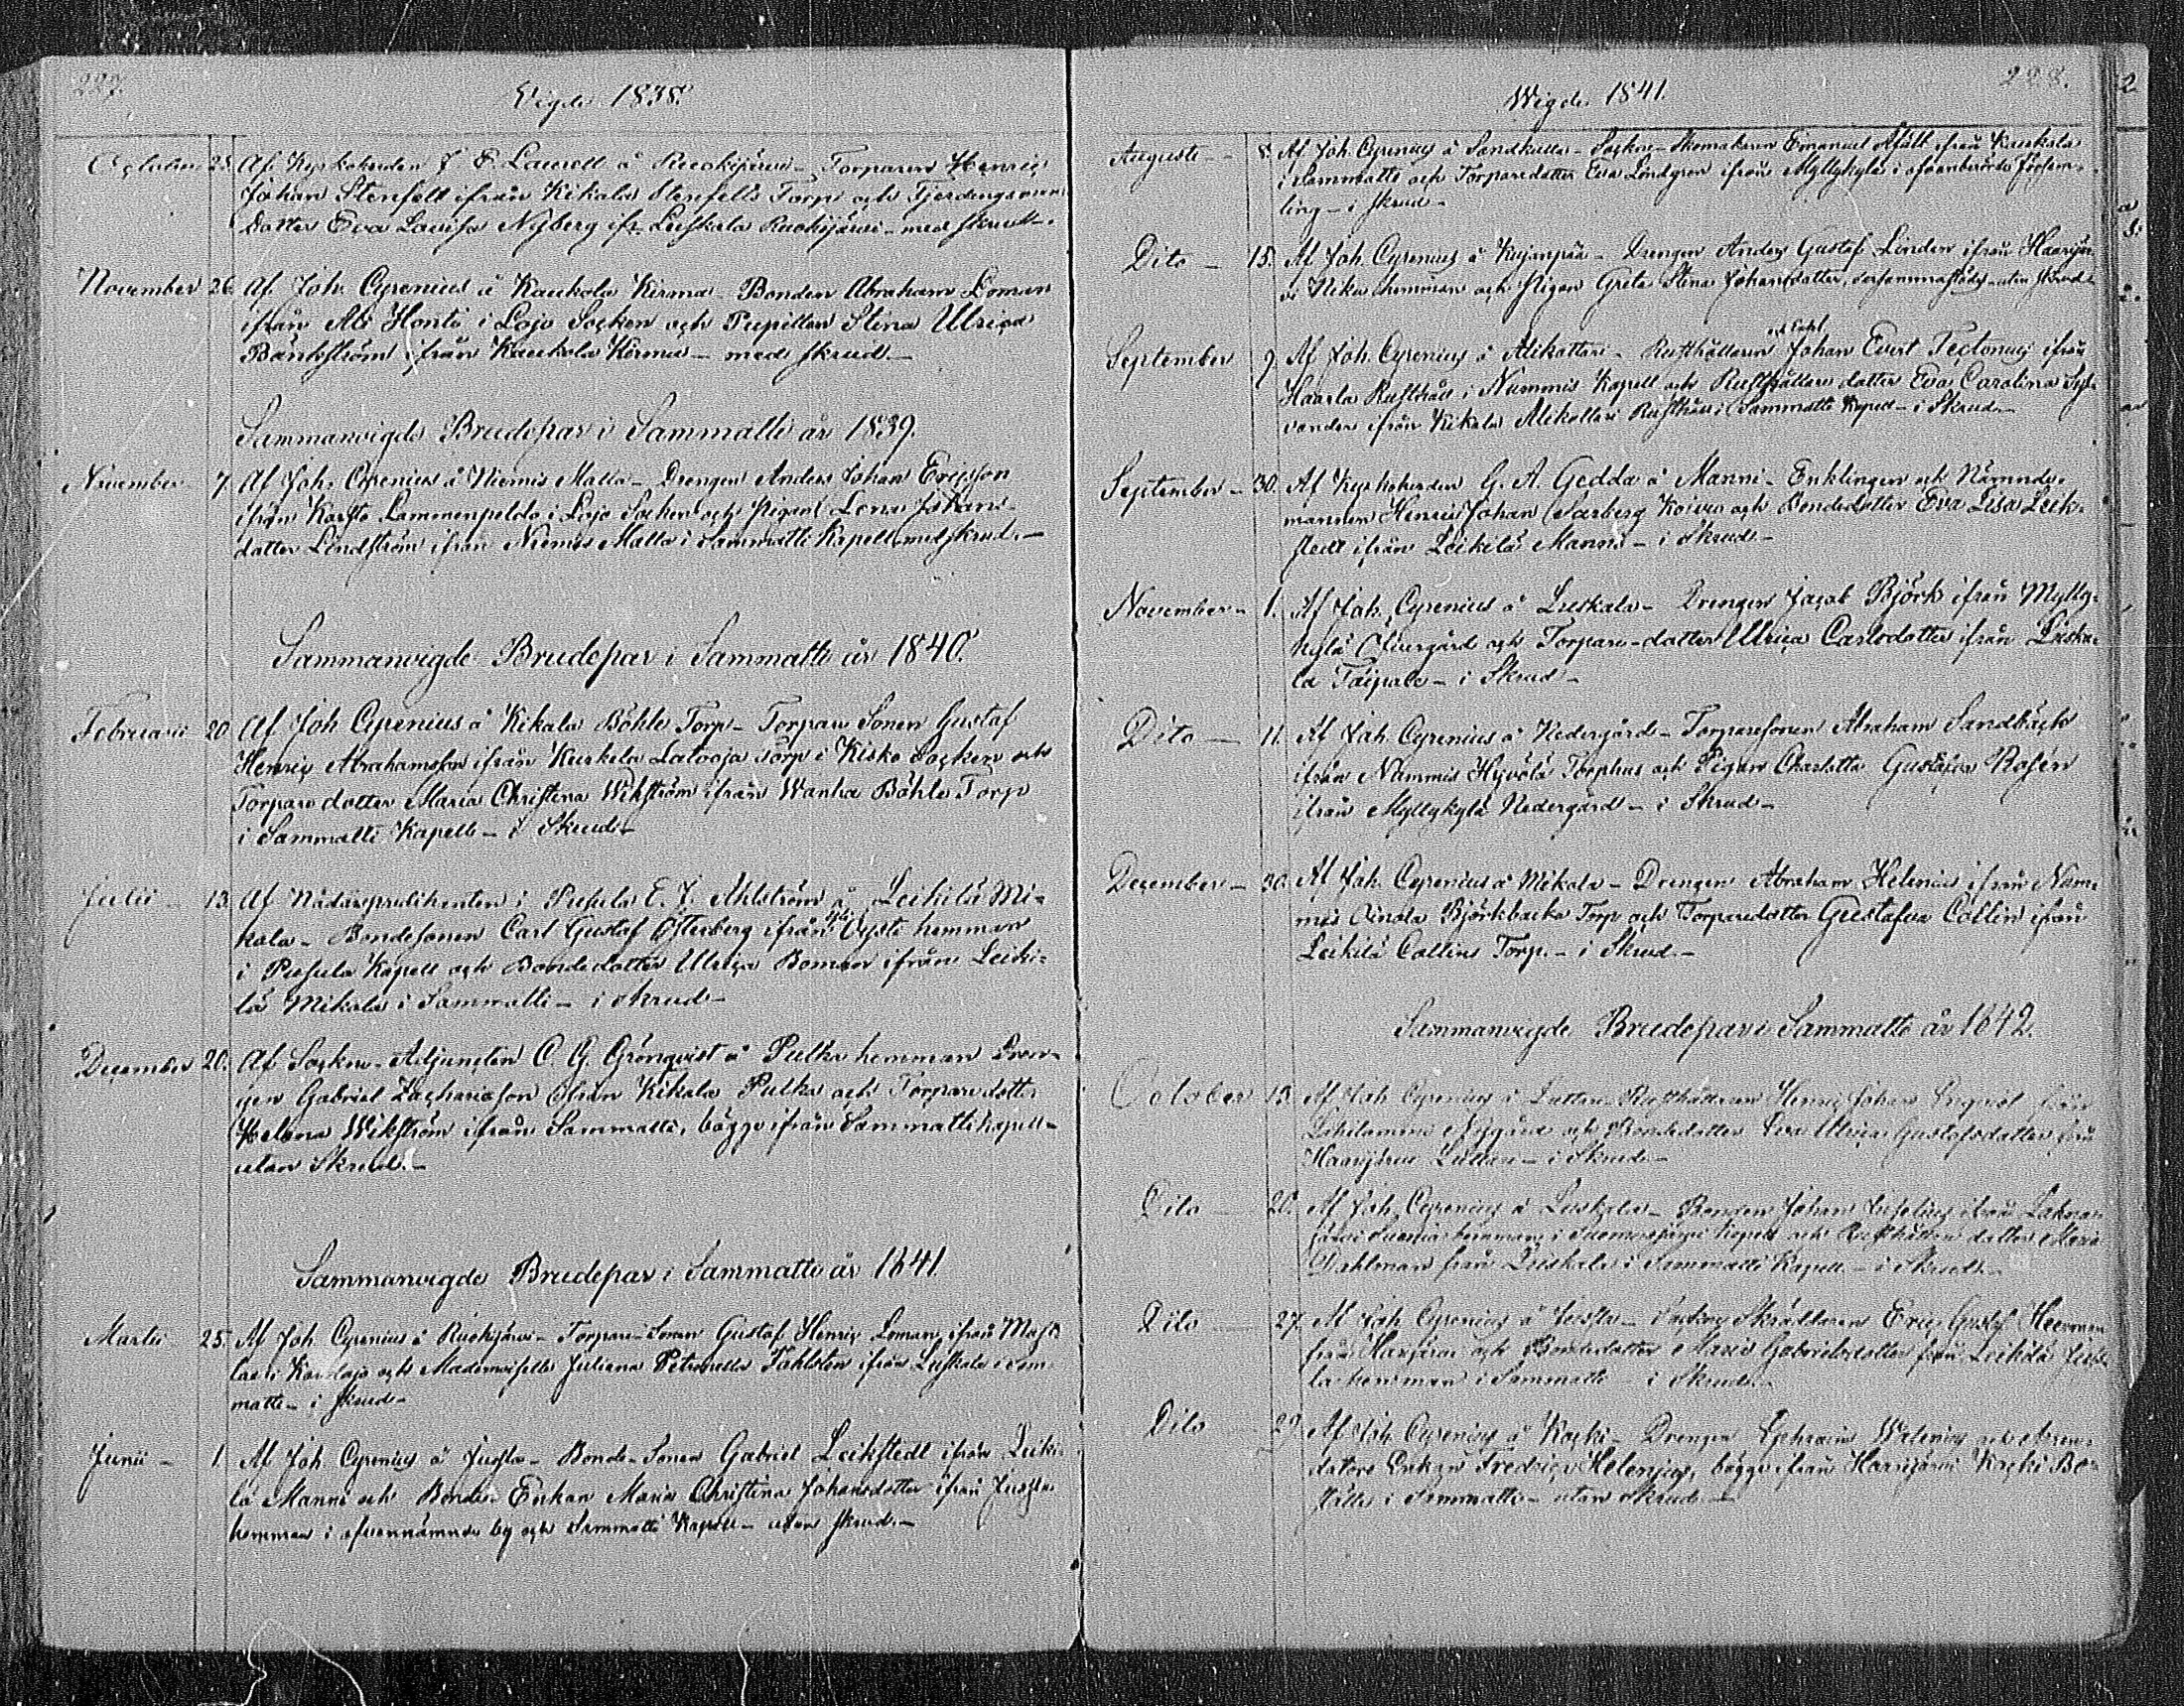 227.
Vigde 1838.
October 25. Af Kyrkoherden F. E. Laurell å Ruokijärvi – Torparen Henric
Johan Stenfelt ifrån Kikala Stenfells Torp och Fjerdingsmans
Dotter Eva Lovisa Nyberg ifr. Luskala Ruokijärvi – med skrud –
November 26. Af Joh. Cyrenius å Kaukola Kirma – Bonden Abraham Loman
ifrån Ali Honti i Lojo Socken och Pupillen Stina Ulrica
Bänkström ifrån Kaukola Kirma – med skrud. –
Sammanvigde Brudepar i Sammatti år 1839.
November 7. Af Joh. Cyrenius å Niemis Malla – Drengen Anders Johan Ericsson
ifrån Karsto Lammenpeldo i Lojo Socken och Pigan Lena Johans-
dotter Lindström ifrån Niemis Malla i Sammatti Kapell med skrud. –
Sammanvigde Brudepar i Sammatti år 1840.
Februarii 20. Af Joh Cyrenius å Kikala Böhle Torp – Torpare Sonen Gustaf
Henric Abrahamsson ifrån Kurkela Latooja Torp i Kisko Socken och
Torpare dotter Maria Christina Wikström ifrån Wanha Böhle Torp
i Sammatti Kapell – i Skrud –
Julii – 13. Af Nådårspredikanten i Pusula E. J. Ahlström å Leikilä Mi-
kala – Bondesonen Carl Gustaf Österberg ifrån Oysti hemman
i Pusula Kapell och Bondedotter Ulrica Boman ifrån Leiki-
lä Mikala i Sammatti – i skrud –
December 20. Af Sockne-Adjuncten C. G. Grönqvist å Pulka hemman Dren-
gen Gabriel Zachariasson ifrån Kikala Pulka och Torpare dotter
Helena Wikström ifrån Sammatti, bägge ifrån Sammatti Kapell –
utan Skrud. –
Sammanvigde Brudepar i Sammatti år 1841.
Martii 25. Af Joh. Cyrenius å Ruokijärvi – Torpare-Sonen Gustaf Henric Loman, ifrån
i Karislojo och Mademoiselle Juliana Petronella Tahlsten ifrån Luskala i Sam-
matti – i skrud –
Junii – 1. Af Joh. Cyrenius å Jussla – Bonde-Sonen Gabriel Leikstedt ifrån Leiki-
lä Manni och Bonde-Enkan Maria Christina Johansdotter ifrån Jussla
hemman i ofvannämnde by och Sammatti Kapell – utan skrud. –
228.
Wigde 1841.
Augusti – 8. Af Joh. Cyrenius å Sandkulla – Sockne-Skomakaren Emanuel Afält ifrån Kaukola
i Sammatti och Torparedotter Eva Löndgren ifrån Myllykylä i ofvanberörde Försam-
ling – i skrud –
Dito – 15. Af Joh. Cyrenius å Kujanpää – Drengen Anders Gustaf Linden ifrån Haarijär-
vi Niku hemman och Pigan Greta Stina Johansdotter, dersammastädes – utan skrud –
September 9. Af Joh. Cyrenius å Alikottari – Rusthållaren och Enkl. Johan Evert Tectonius ifrån
Haarla Rusthåll i Nummis Kapell och Rusthållare dotter Eva Carolina Syl-
vander ifrån Kikala Alikottari Rusthåll i Sammatti Kapell – i Skrud. –
September – 30. Af Kyrkoherden G. A. Gedda å Manni – Enklingen och Nämnde-
mannen Henric Johan Sarberg Koivu och Bondedotter Eva Lisa Leik-
stedt ifrån Leikilä Manni – i skrud –
November – 1. Af Joh. Cyrenius å Luskala – Drengen Jacob Björk ifrån Mylly-
kylä Öfvergård och Torpare-dotter Ulrica Carlsdotter ifrån Luska-
la Taipale – i Skrud –
Dito – 11. Af Joh. Cyrenius å Nedergård – Torparesonen Abraham Sandbäck
ifrån Nummis Hyvölä Torphus och Pigan Charlotta Gustafva Rosén
ifrån Myllykylä Nedergård – i Skrud –
December – 30. Af Joh. Cyrenius å Mikala – Drengen Abraham Helenius ifrån Num-
mis Oinola Björkbacka Torp och Torparedotter Gustafva Collin ifrån
Leikilä Collins Torp. – i Skrud. –
Sammanvigde Brudepar i Sammatti år 1842.
October 13. Af Joh. Cyrenius å Luttu – Rusthållaren Henric Johan Enqvist från
Nygård och Bondedotter Eva Ulrica Gustafsdotter från
Haarijärvi Luttu – i Skrud –
Dito 20. Af Joh. Cyrenius å Luskala – Bonden Johan ifrån
hemman i Suomusjärvi Kapell och Rusthållare dotter Maria
Dahlman från Luskala i Sammatti Kapell – i Skrud. –
Dito 27. Af Joh. Cyrenius å Jussla – Sockne Skräddaren Eric Gustaf Heerman
från Haarijärvi och Bondedotter Maria Gabrielsdotter från Leikilä Juss-
la hemman i Sammatti i Skrud –
Dito 29. Af Joh. Cyrenius å Kaski – Drengen Ephraim Walenius och Aren-
dators Enkan Fredrica Helenius, bägge ifrån Haarijärvi Kaski Bo-
ställe i Sammatti – utan skrud –